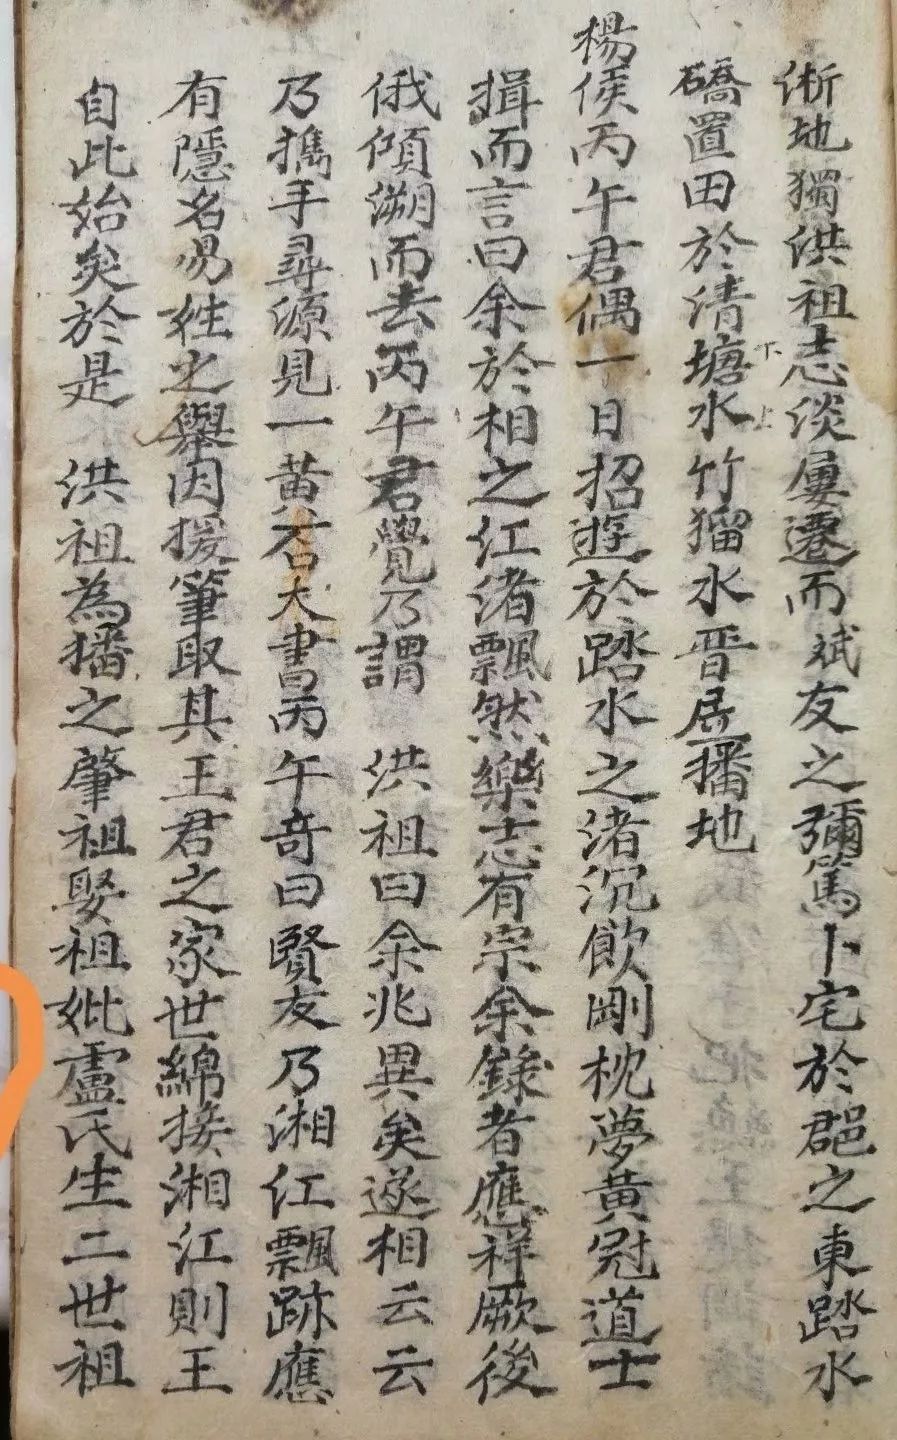 淅地獨洪祖志淡屢遷而斌友之彌篤卜宅於郡之東踏水
礄置田於清塘水竹獦水晋居播地
楊侯丙午君偶一日招遊於踏水之渚沉飲剛枕夢黄冠道士
揖而言曰余於相之江渚飄然樂志有宗余錄者應祥厥後
俄傾溯而去丙午君覺乃謂 洪祖曰余兆異矣遂相云云
乃攜手尋源見一黄石大書丙午竒曰賢友乃湘江飄跡應
有隱名易姓之舉因援筆取其王君之家世綿接湘江則王
自此始矣於是 洪祖為播之肇祖娶祖妣盧氏生二世祖
下
上